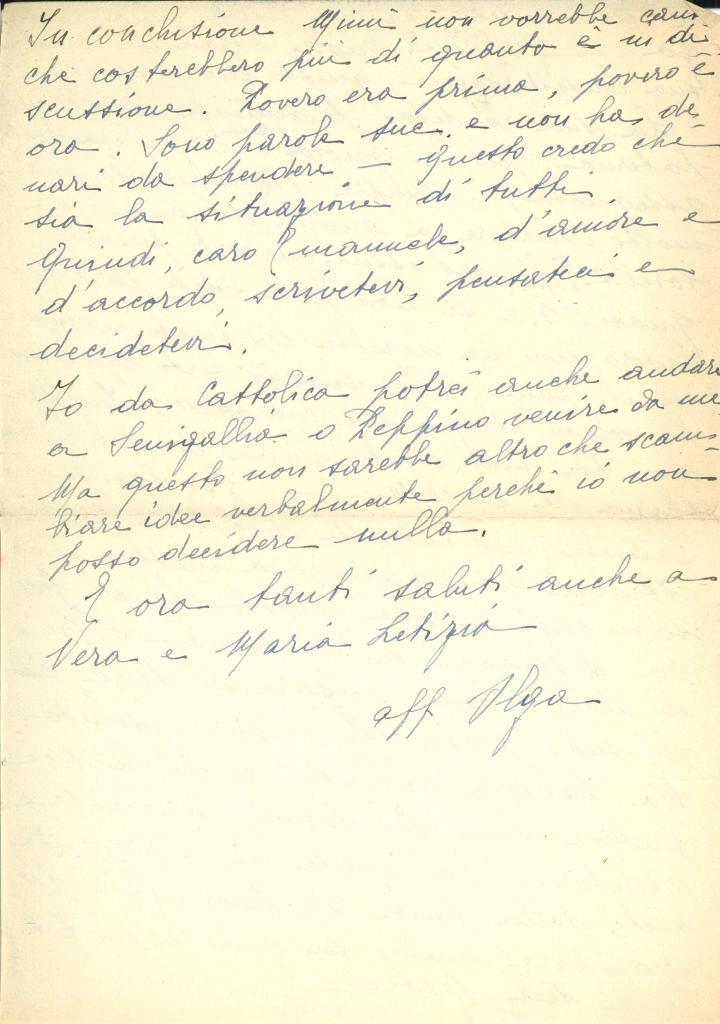 In conclusione Mimì non vorrebbe cau-
che costerebbero più di quanto è in di-
scussione. Povero era prima, povero è
ora. Sono parole sue. e non ha de-
nari da spendere — questo credo che
sia la situazione di tutti
Quindi, caro Emanuele, d'amore e
d'accordo, scrivetevi, pensateci e
decidetevi.
Io da Cattolica potrei anche andare
a Senigallia o Peppino venire da me
Ma questo non sarebbe altro che scam-
biare idee verbalmente perchè io non
posso decidere nulla.
E ora tanti saluti anche a
Vera e Maria Letizia
aff Olga